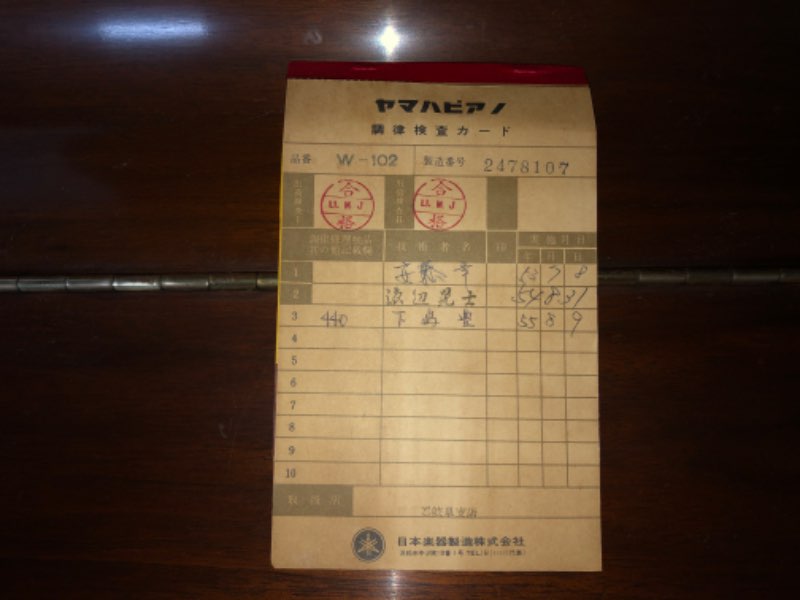 ヤマハピアノ
調律検査カード
品番 W-102 製造番号 2478107
合 LL M J 格 合 LL M J 格
調律修理枕品 技術者名 印 実施月日
年 月 日
1 53 7 8
2 渡辺晃士 54 8 31
3 440 下嶋豊 55 8 9
4
5
6
7
8
9
10
取扱所
日本楽器製造株式会社